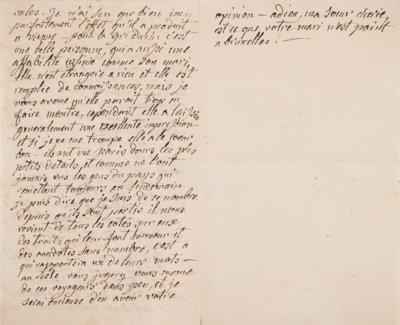 cotes. je n'ai su que bien im-
parfaitement l'effet qu'il a produit
a vienne - pour la grd duchesse c'est
une belle personne, qui a aussi une
affabilité infinie comme son mari
elle n'est etrangere a rien et elle est
remplie de connoissances, mais je
vous avoue qu'elle paroit trop en
faire montre, cependant elle a laissé
generalement une excellente impression
et si je ne me trompe elle a le coeur
bon - ils ont vus paris dans les plus
petits details, et comme ne l'ont
jamais vus les gens du pays qui
remettent toujours au lendemain
je puis dire que je suis de ce nombre
depuis qu'ils sont partis il nous
revient de tous les cotes sur eux
des traits qui leur font honneur et
des anecdotes sans nombre, c'est a
qui rapportera un de leurs mots -
au reste vous jugerez vous meme
de ces voyageurs dans peu, et je
serai curieuse d'en avoir votre
opinion - adieu, ma soeur cherie
est ce que votre mari n'est point
a bruxelles?